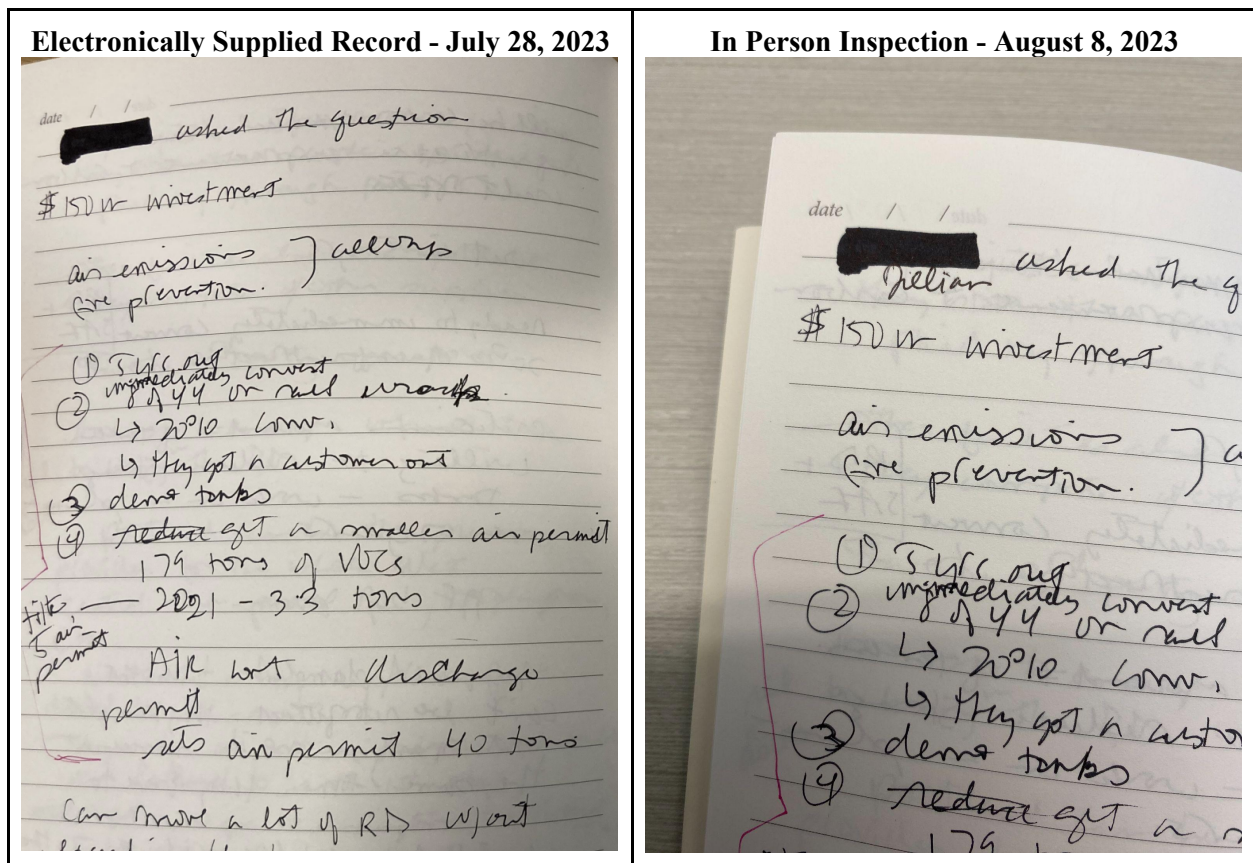 Electronically Supplied Record - July 28, 2023
date / /
asked the question
$150m investment
air emissions } 
fire prevention.
① 5 yrs out
immediately convert
② 8 of 44 on rail
↳ 20% conv.
↳ they got a customer out
③ demo tanks
④ reduce get a smaller air permit
179 tons of VOCs
2021 - 3.3 tons
title
5 air
permit
AIR cont discharge
permit
sets air permit 40 tons
Can move a lot of RD w/out
In Person Inspection - August 8, 2023
date / /
asked the q
Jillian
$150m investment
air emissions }
fire prevention.
① 5 yrs out
immediately convert
② 8 of 44 on rail
↳ 20% conv.
↳ they got a custo
③ demo tanks
④ reduce get a
179